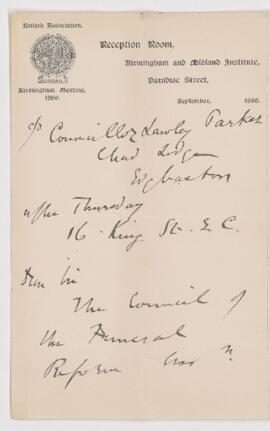 British Association.
Reception Room,
Birmingham and Midland Institute,
Paradise Street,
Birmingham Meeting,
1886.
September, 1886.
c/o Councillor Lawley Parker
Chad Lodge
Edgbaston
after Thursday
16 King St. E. C.
Dear Sir
The Council of
the Funeral
Reform Asso n